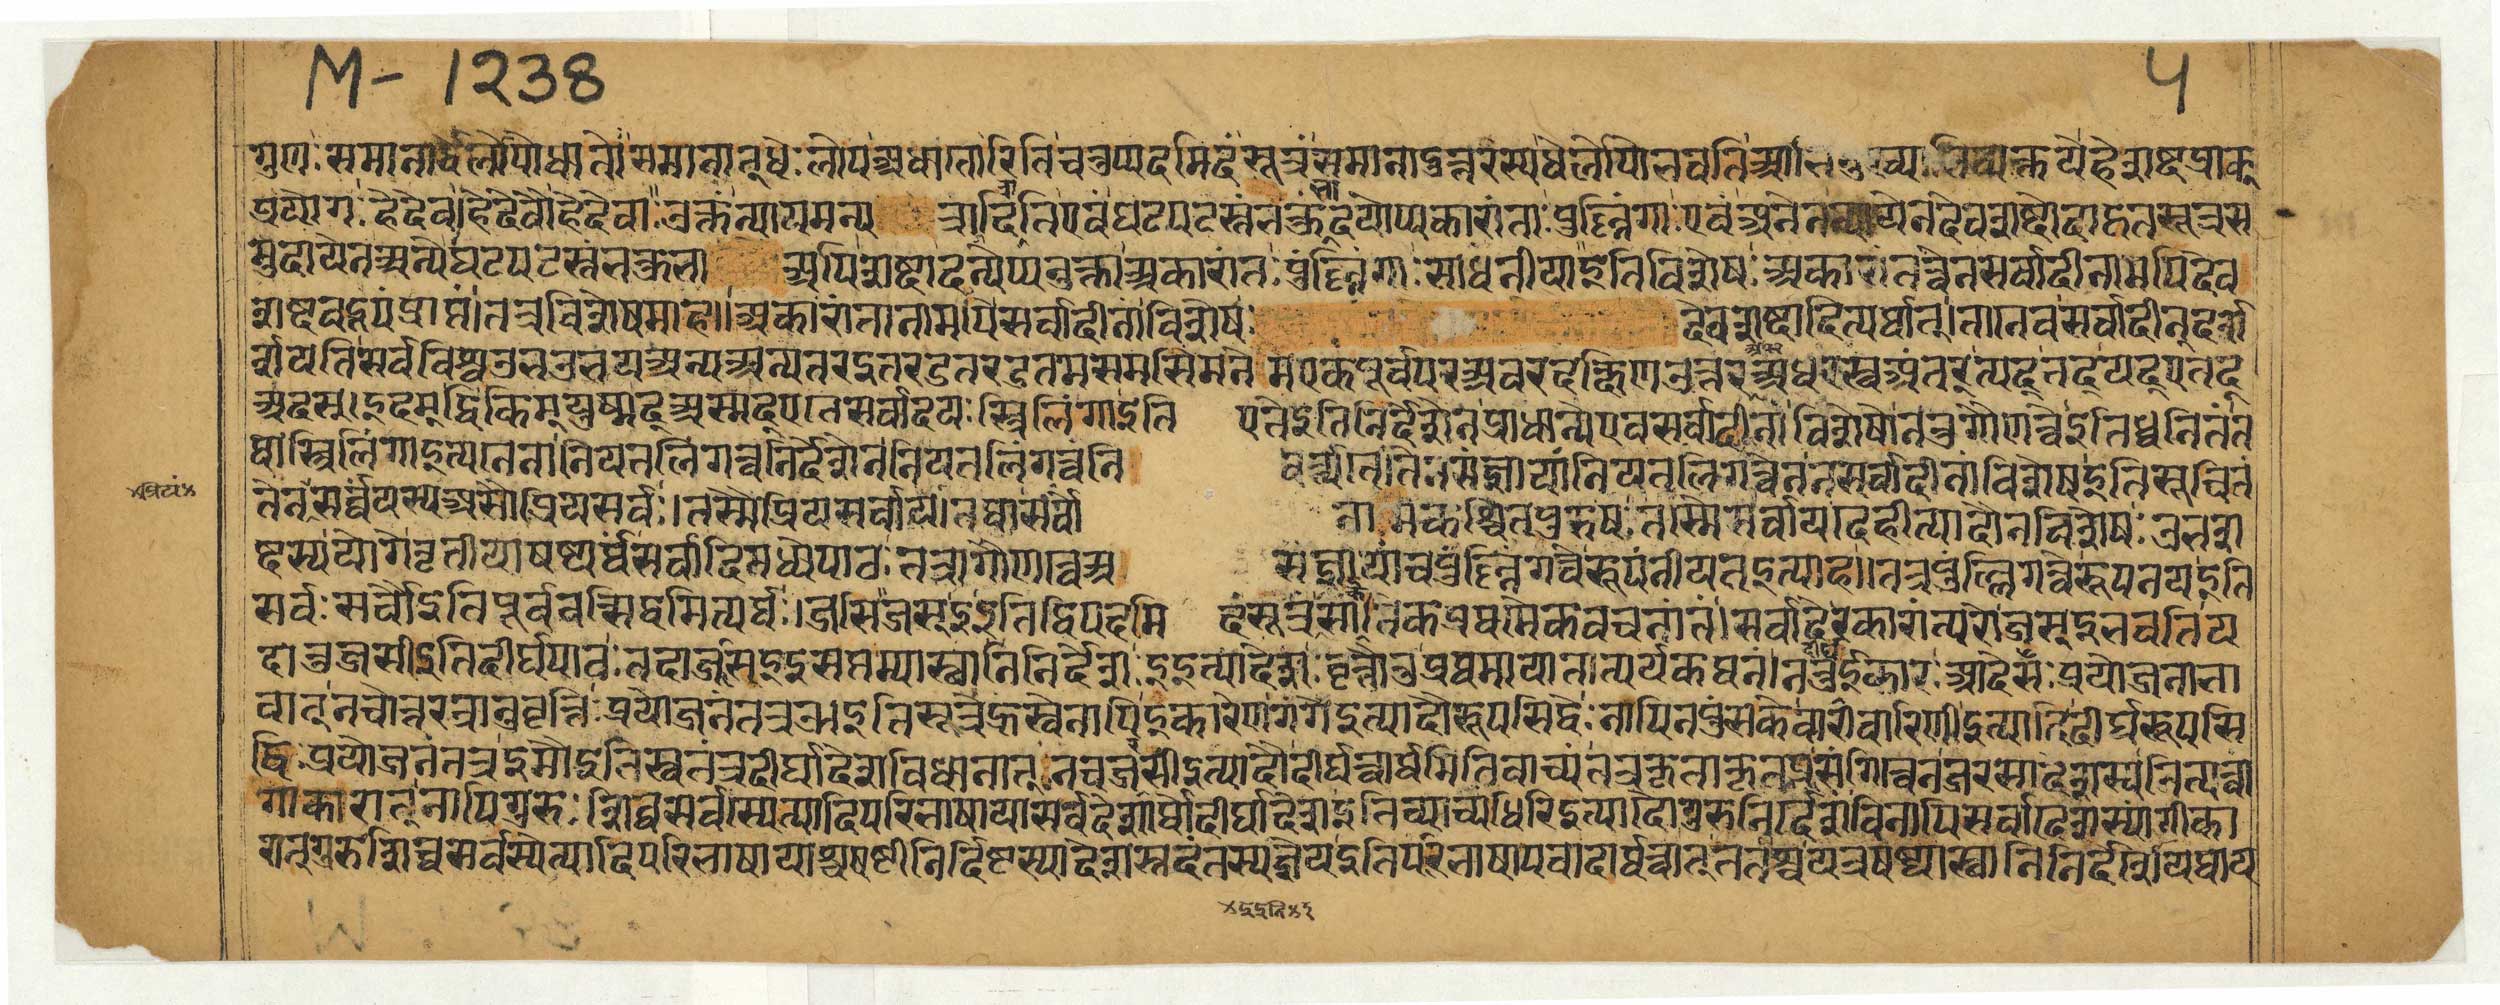 M-1238
५
गुणः समानाद्धेर्लोपोधातोः समानात् धेः लोपः अधातोरिति चतुष्पदमिदं सूत्रं समानादुत्तरस्य धेर्लोपो भवति आभिमुख्याभिव्यक्तये हेशब्दप्राक्
प्रयोगः हेदेव। हेदेवौ हेदेवाः उक्तंन्यायमन्य त्रादिशति एवं घटपटस्तंभकुंभादयोप्यकारांताः पुल्लिंगाः एवं अनेनन्यायेन देवशब्दोदाहृतसूत्रस
मुदायेन अन्ये घटपटस्तंभकुंभा अपिशब्दादन्येप्यनुक्ता अकारांताः पुंल्लिंगाः साधनीया इति विशेषः अकारांतत्वेन सर्वादीनामपि देव
शब्दवद्रूपं प्राप्तं। तत्र विशेषमाह॥ अकारांतानामपि सर्वादीनां विशेषः देवशब्दादित्यर्थात्। तानेव सर्वादीन् दर्श
र्शयति सर्व विश्व उभ उभय अन्य अन्यतर इतर डतर डतम सम सिम नेम एक पूर्व पर अवर दक्षिण उत्तर अपर अधर स्व अंतर त्यद् तद् यद् एतद्
अदस्। इदम् द्वि किम् युष्मद् अस्मद् एते सर्वादयः स्त्रिलिंगा इति एते इति निर्देशेन प्राधान्य एव सर्वादीनां विशेषो न तु गौणत्व इति ध्वनितं ते
षां स्त्रिलिंगा इत्यनेन नियतलिंगत्वनिर्देशेन नियतलिंगत्वनि वृत्त्या तेन संज्ञायां नियतलिंगत्वेन न सर्वादीनां विशेष इति सूचितं
तेन सर्वे यस्य असौ प्रियसर्वः। तस्मै प्रियसर्वाय। तथा सर्वो नाम कश्चित् पुरुषः तस्मै सर्वाय देहीत्यादौ न विशेषः उभश
ब्दस्य योगे तृतीयाषष्ठ्यर्थं सर्वादिमध्ये पाठः तत्रागौणत्वे अ संज्ञायां च पुंल्लिंगत्वे रूपं नीयत इत्याह॥ तत्र पुंल्लिंगत्वे रूपं नेय इति
सर्वः सर्वौ इति पूर्ववत्सिद्धमित्यर्थः। जसि जस् इ इति द्विपदमि दं सूत्रं सांकेतिकप्रथमैकवचनांतं। सर्वादेरकारांत्परो जस् इ भवति य
दा तु जसीइति दीर्घपाठः तदा जस् इ इ सप्तम्यास्थानिनिर्देशः इ इत्यादेशः वृत्तौ तु प्रथमायाता त्पर्यकथनं। ननु इकारः आदेशः प्रयोजनाभा
वात् न चोत्तरत्रानुवृत्तिः प्रयोजनं तत्र ञ। इति सूत्रे ह्रस्वेनापि इकारेण गंगे इत्यादौ रूपसिद्धेः नापि नपुंसके वारी वारिणी इत्यादि दीर्घरूपसि
द्धिः प्रयोजनं तत्र इमौ इति स्वतंत्रदीर्घादेशविधानात्। न च जसी इत्यादौ दीर्घत्वार्थमिति वाच्यं तत्र कृताकृतप्रसंगित्वेन जरसादेशस्य नित्यत्वां
गीकारात् नापि गुरुः शिच्च सर्वस्येत्यादिपरिभाषया सर्वादेशार्थो दीर्घादेश इति व्याच्यधिरि इत्यादौ गुरुनिर्देशं विनापि सर्वादेशस्यांगीका
रात् गुरुः शिच्च सर्वस्येत्यादिपरिभाषायाश्च षष्ठीनिर्दिष्टस्यादेशस्तदंतस्य ज्ञेय इति परिभाषापवादार्थत्वात् ततश्च यत्र षष्ठ्यास्थानिनिर्देशो यथा य